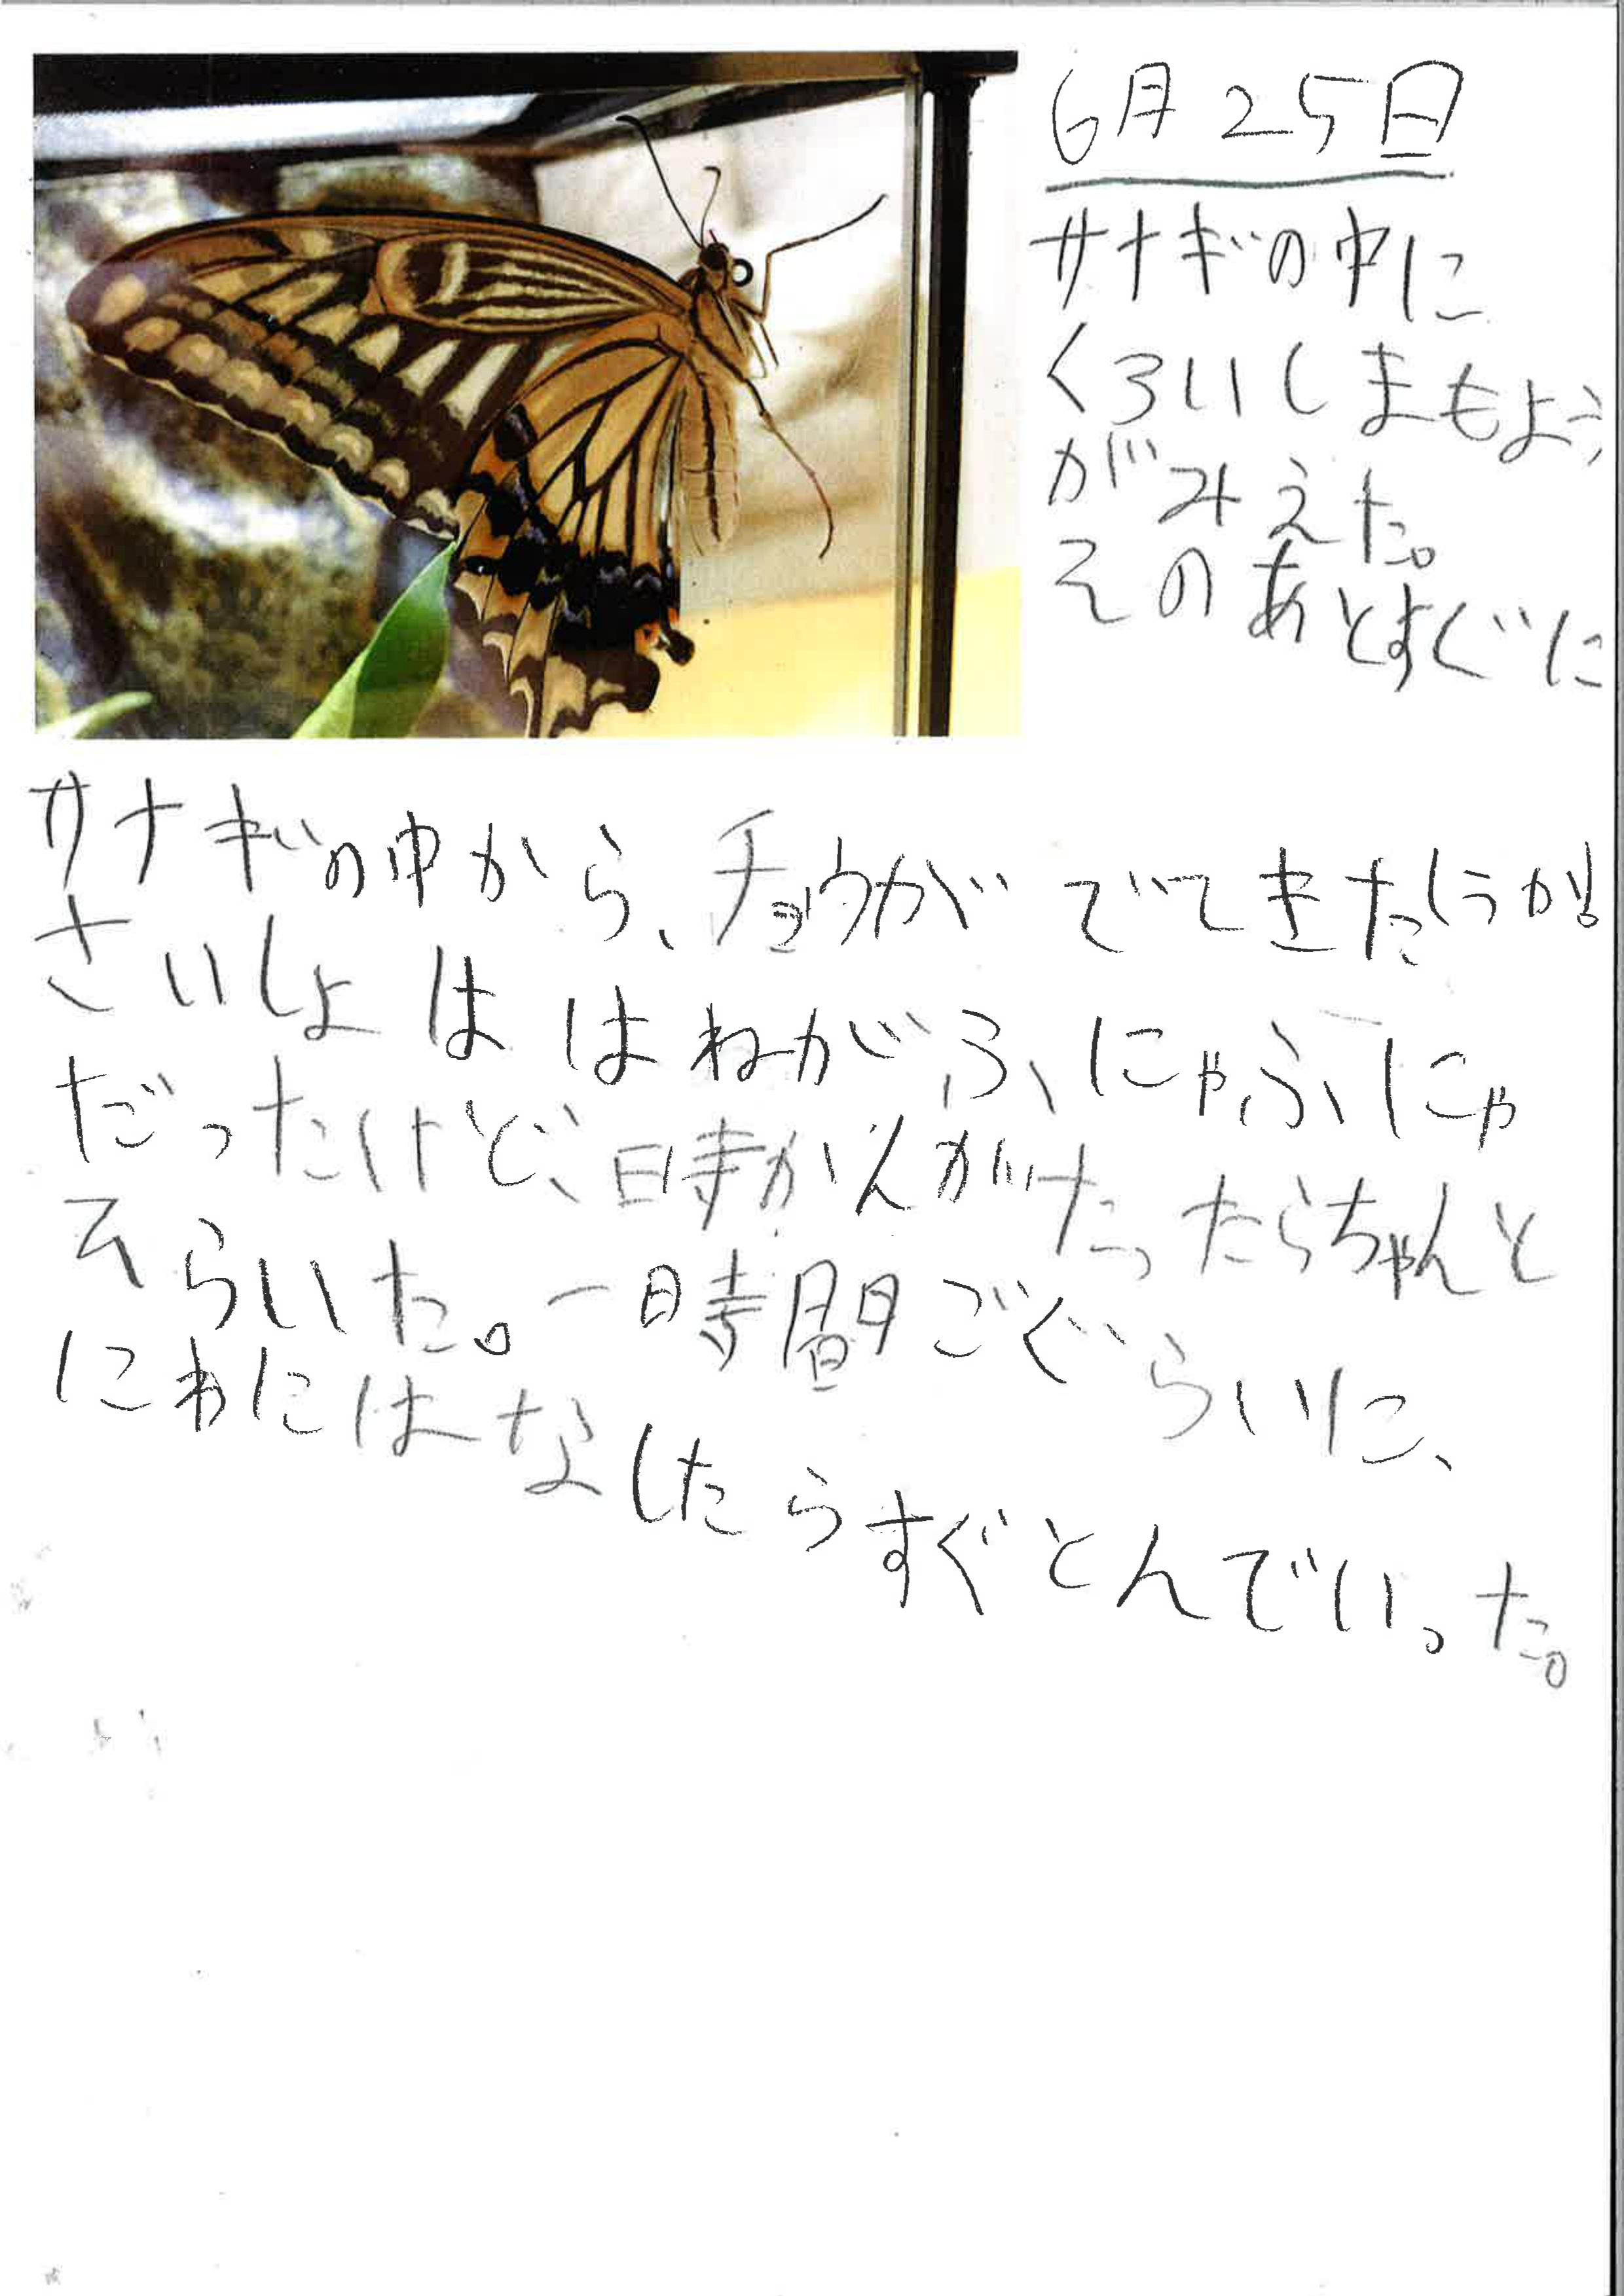 6月25日
サナギの中に
くろいしまもよう
がみえた。
そのあとすぐに
サナギの中から、チョウがでてきた(うか!
さいしょははねがふにゃふにゃ
だったけど、時かんがたったらちゃんと
そらいた。一時間ごぐらいに、
にわにはなしたらすぐとんでいった。